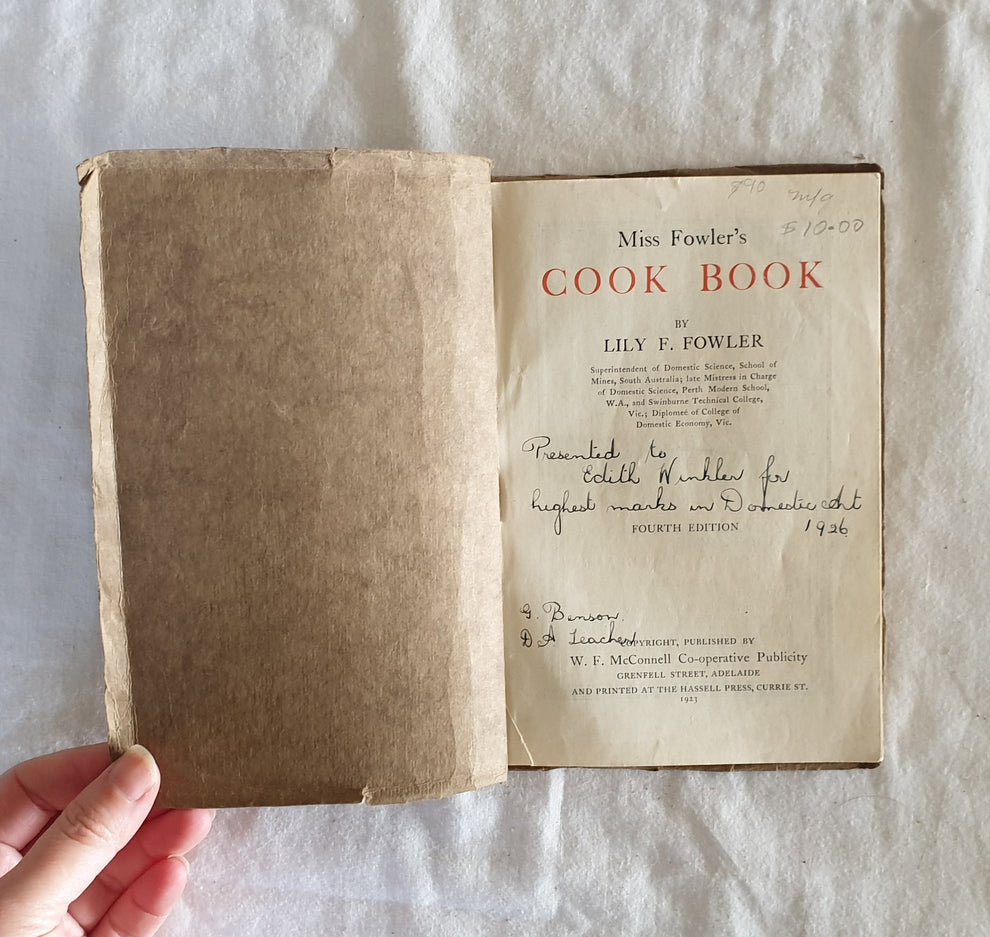 $10-00
Miss Fowler's
COOK BOOK
BY
LILY F. FOWLER
Superintendent of Domestic Science, School of
Mines, South Australia; late Mistress in Charge
of Domestic Science, Perth Modern School,
W.A., and Swinburne Technical College,
Vic.; Diplomeé of College of
Domestic Economy, Vic.
Presented to
Edith Winkler for
highest marks in Domestic Art
FOURTH EDITION 1926
G. Benson.
D A Teacher
COPYRIGHT, PUBLISHED BY
W. F. McConnell Co-operative Publicity
GRENFELL STREET, ADELAIDE
AND PRINTED AT THE HASSELL PRESS, CURRIE ST.
1923